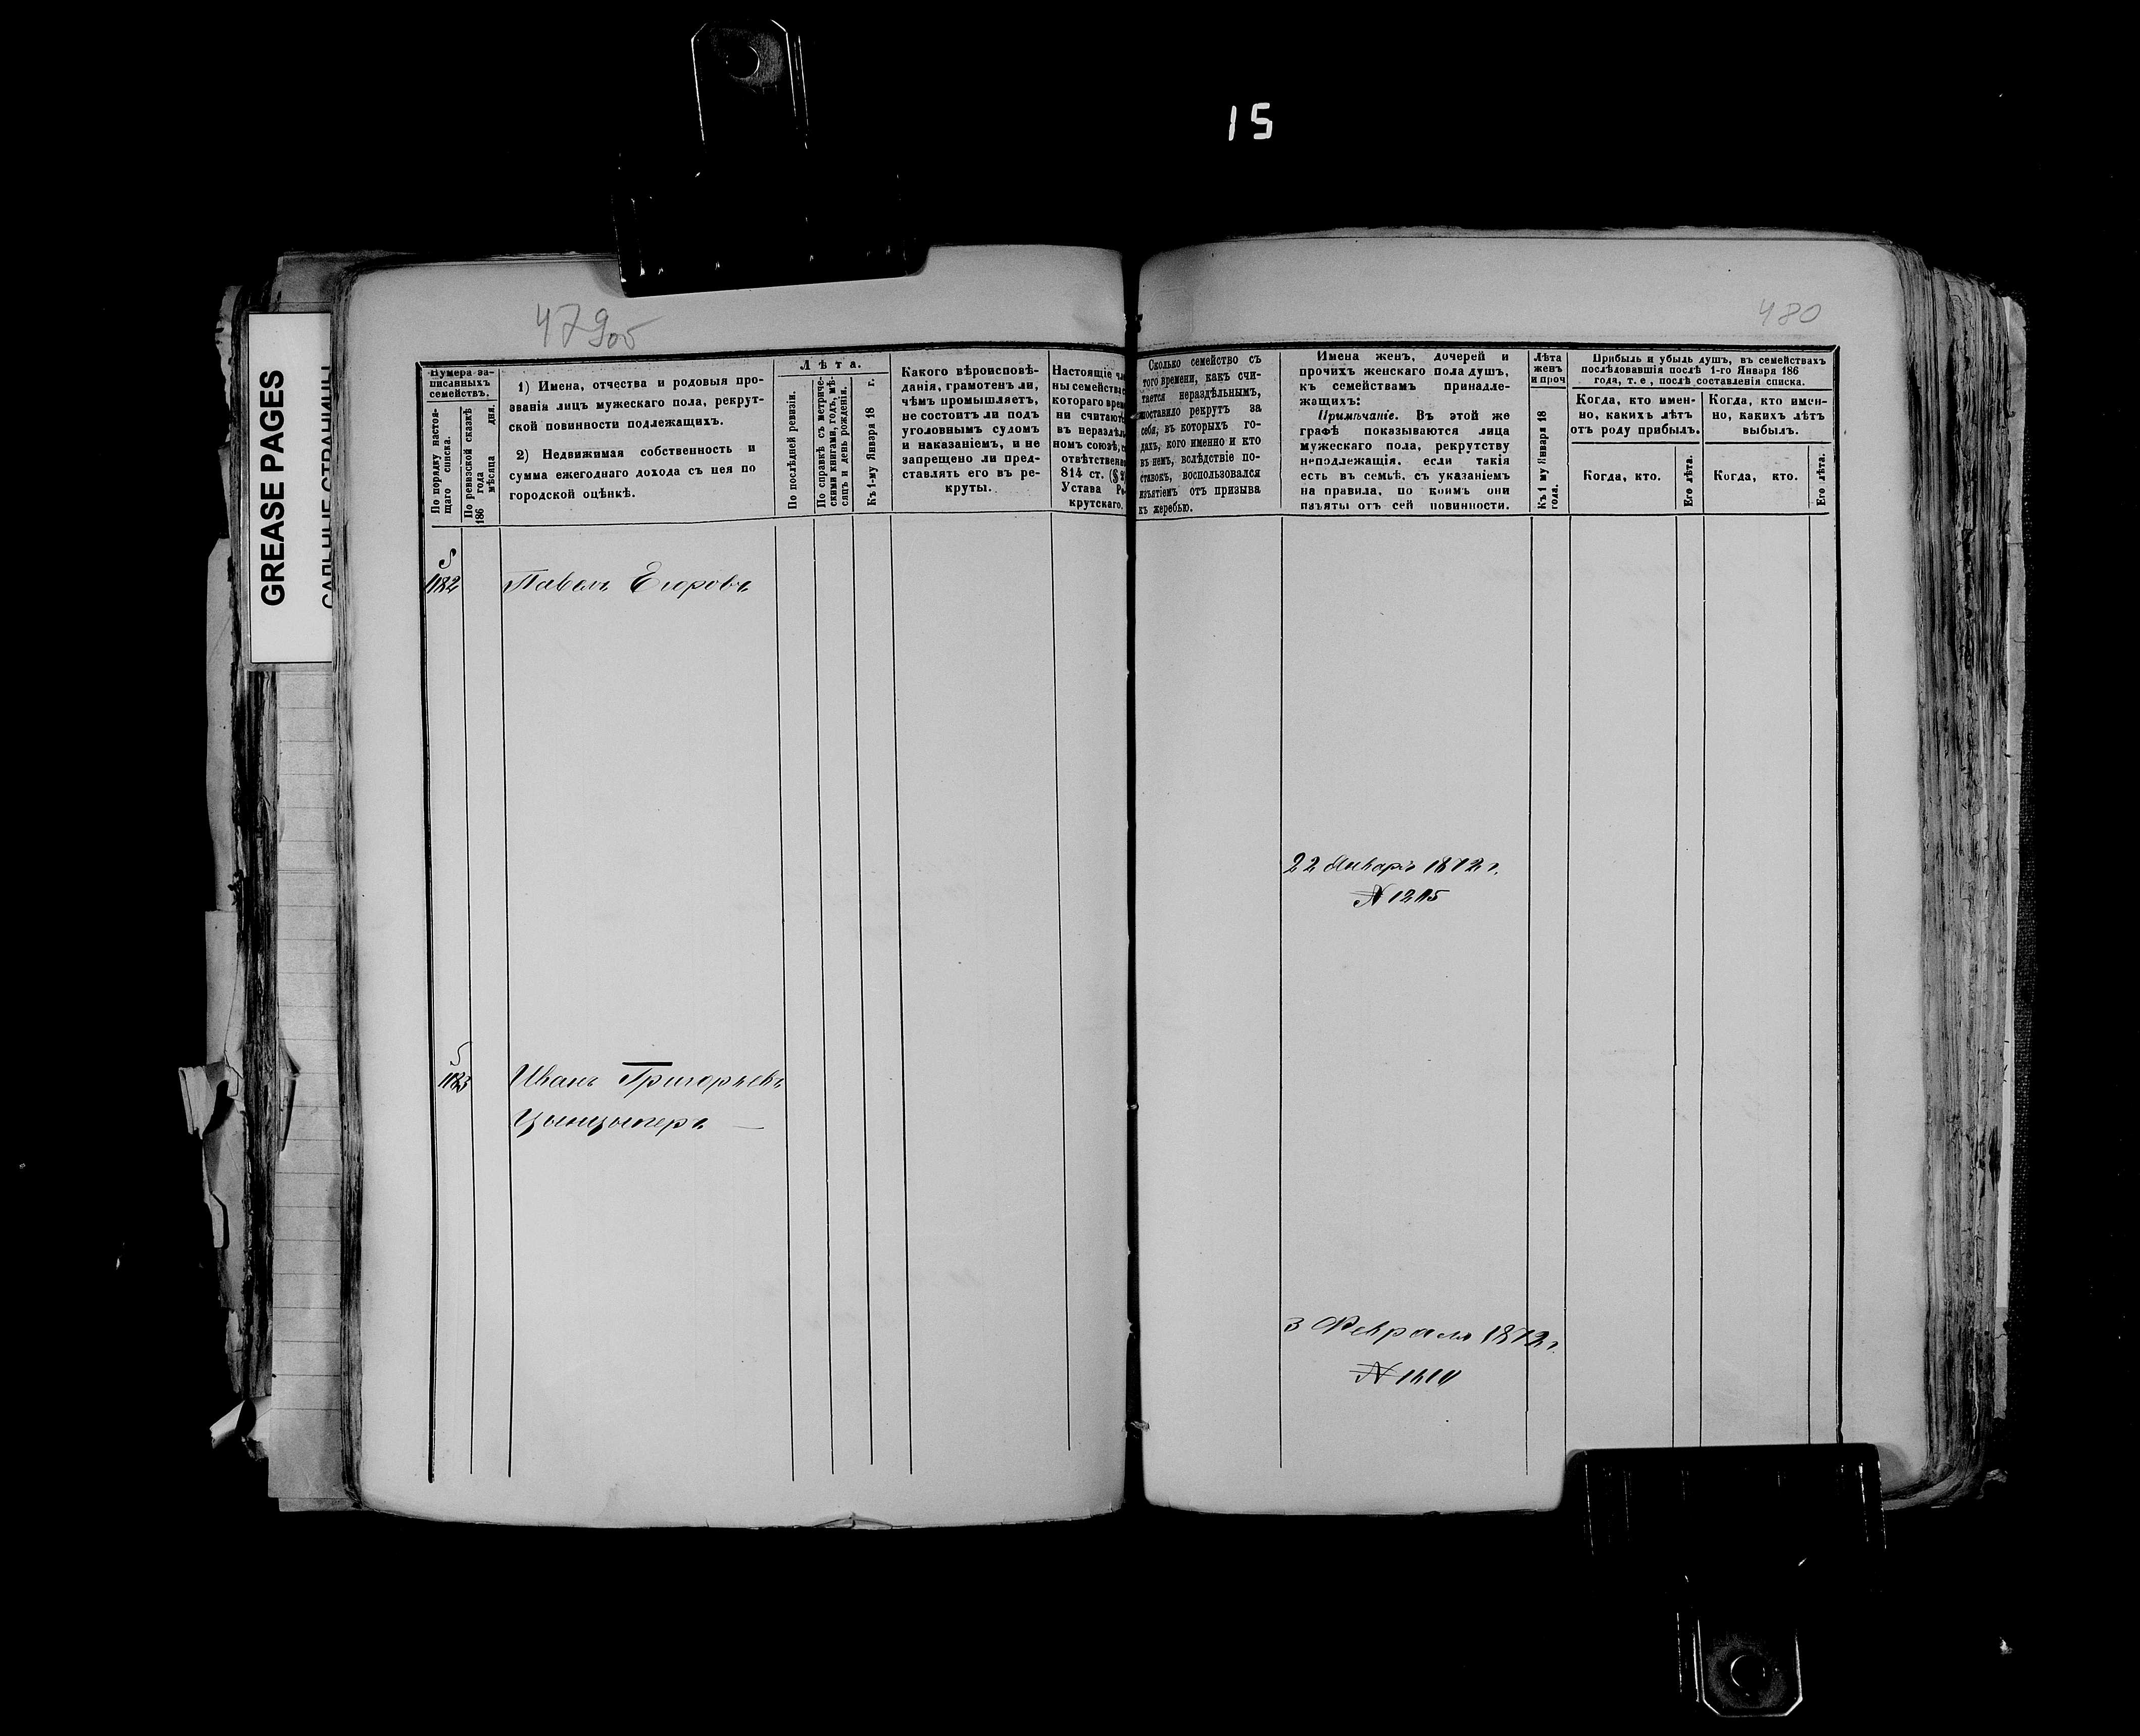 15
GREASE PAGES
479об
480
Нумера за-
писанныхъ
семействъ.
По порядку настоя-
щаго списка.
По ревизской сказкѣ
186 года
мѣсяца дня.
1) Имена, отчества и родовыя про-
званія лицъ мужескаго пола, рекрут-
ской повинности подлежащихъ.
2) Недвижимая собственность и
сумма ежегоднаго дохода съ нея по
городской оцѣнкѣ.
Лѣта.
По послѣдней ревизіи.
По справкѣ съ метриче-
скими книгами, годъ, мѣ-
сяцъ и день рожденія.
Къ 1-му Января 18 г.
Какого вѣроисповѣ-
данія, грамотенъ ли,
чѣмъ промышляетъ,
не состоитъ ли подъ
уголовнымъ судомъ
и наказаніемъ, и не
запрещено ли пред-
ставлять его въ ре-
круты.
Настоящіе
ны семейства
котораго
ни считают
въ
номъ союзѣ,
814 ст. (§
Устава
крутскаго.
Сколько семейство съ
того времени, какъ счи-
тается нераздѣльнымъ,
поставило рекрутъ за
себя, въ которыхъ го-
дахъ, кого именно и кто
въ немъ, вслѣдствіе по-
ставокъ, воспользовался
изъятіемъ отъ призыва
къ жеребью.
Имена женъ, дочерей и
прочихъ женскаго пола душъ,
къ семействамъ принадле-
жащихъ:
Примѣчаніе. Въ этой же
графѣ показываются лица
мужескаго пола, рекрутству
неподлежащія, если такія
есть въ семьѣ, съ указаніемъ
на правила, по коимъ они
изъяты отъ сей повинности.
Лѣта
женъ
и проч
Къ 1 му Января 18
года.
Прибыль и убыль душъ, въ семействахъ
послѣдовавшія послѣ 1-го Января 186
года, т. е., послѣ составленія списка.
Когда, кто имен-
но, какихъ лѣтъ
отъ роду прибылъ.
Когда, кто имен-
но, какихъ лѣтъ
выбылъ.
Когда, кто.
Его лѣта.
Когда, кто.
Его лѣта.
1182
Павелъ Егоровъ
22 Января 1872 г.
N 1215
1183
Иванъ Григорьевъ
Цынцыперъ —
3 Февраля 1872 г.